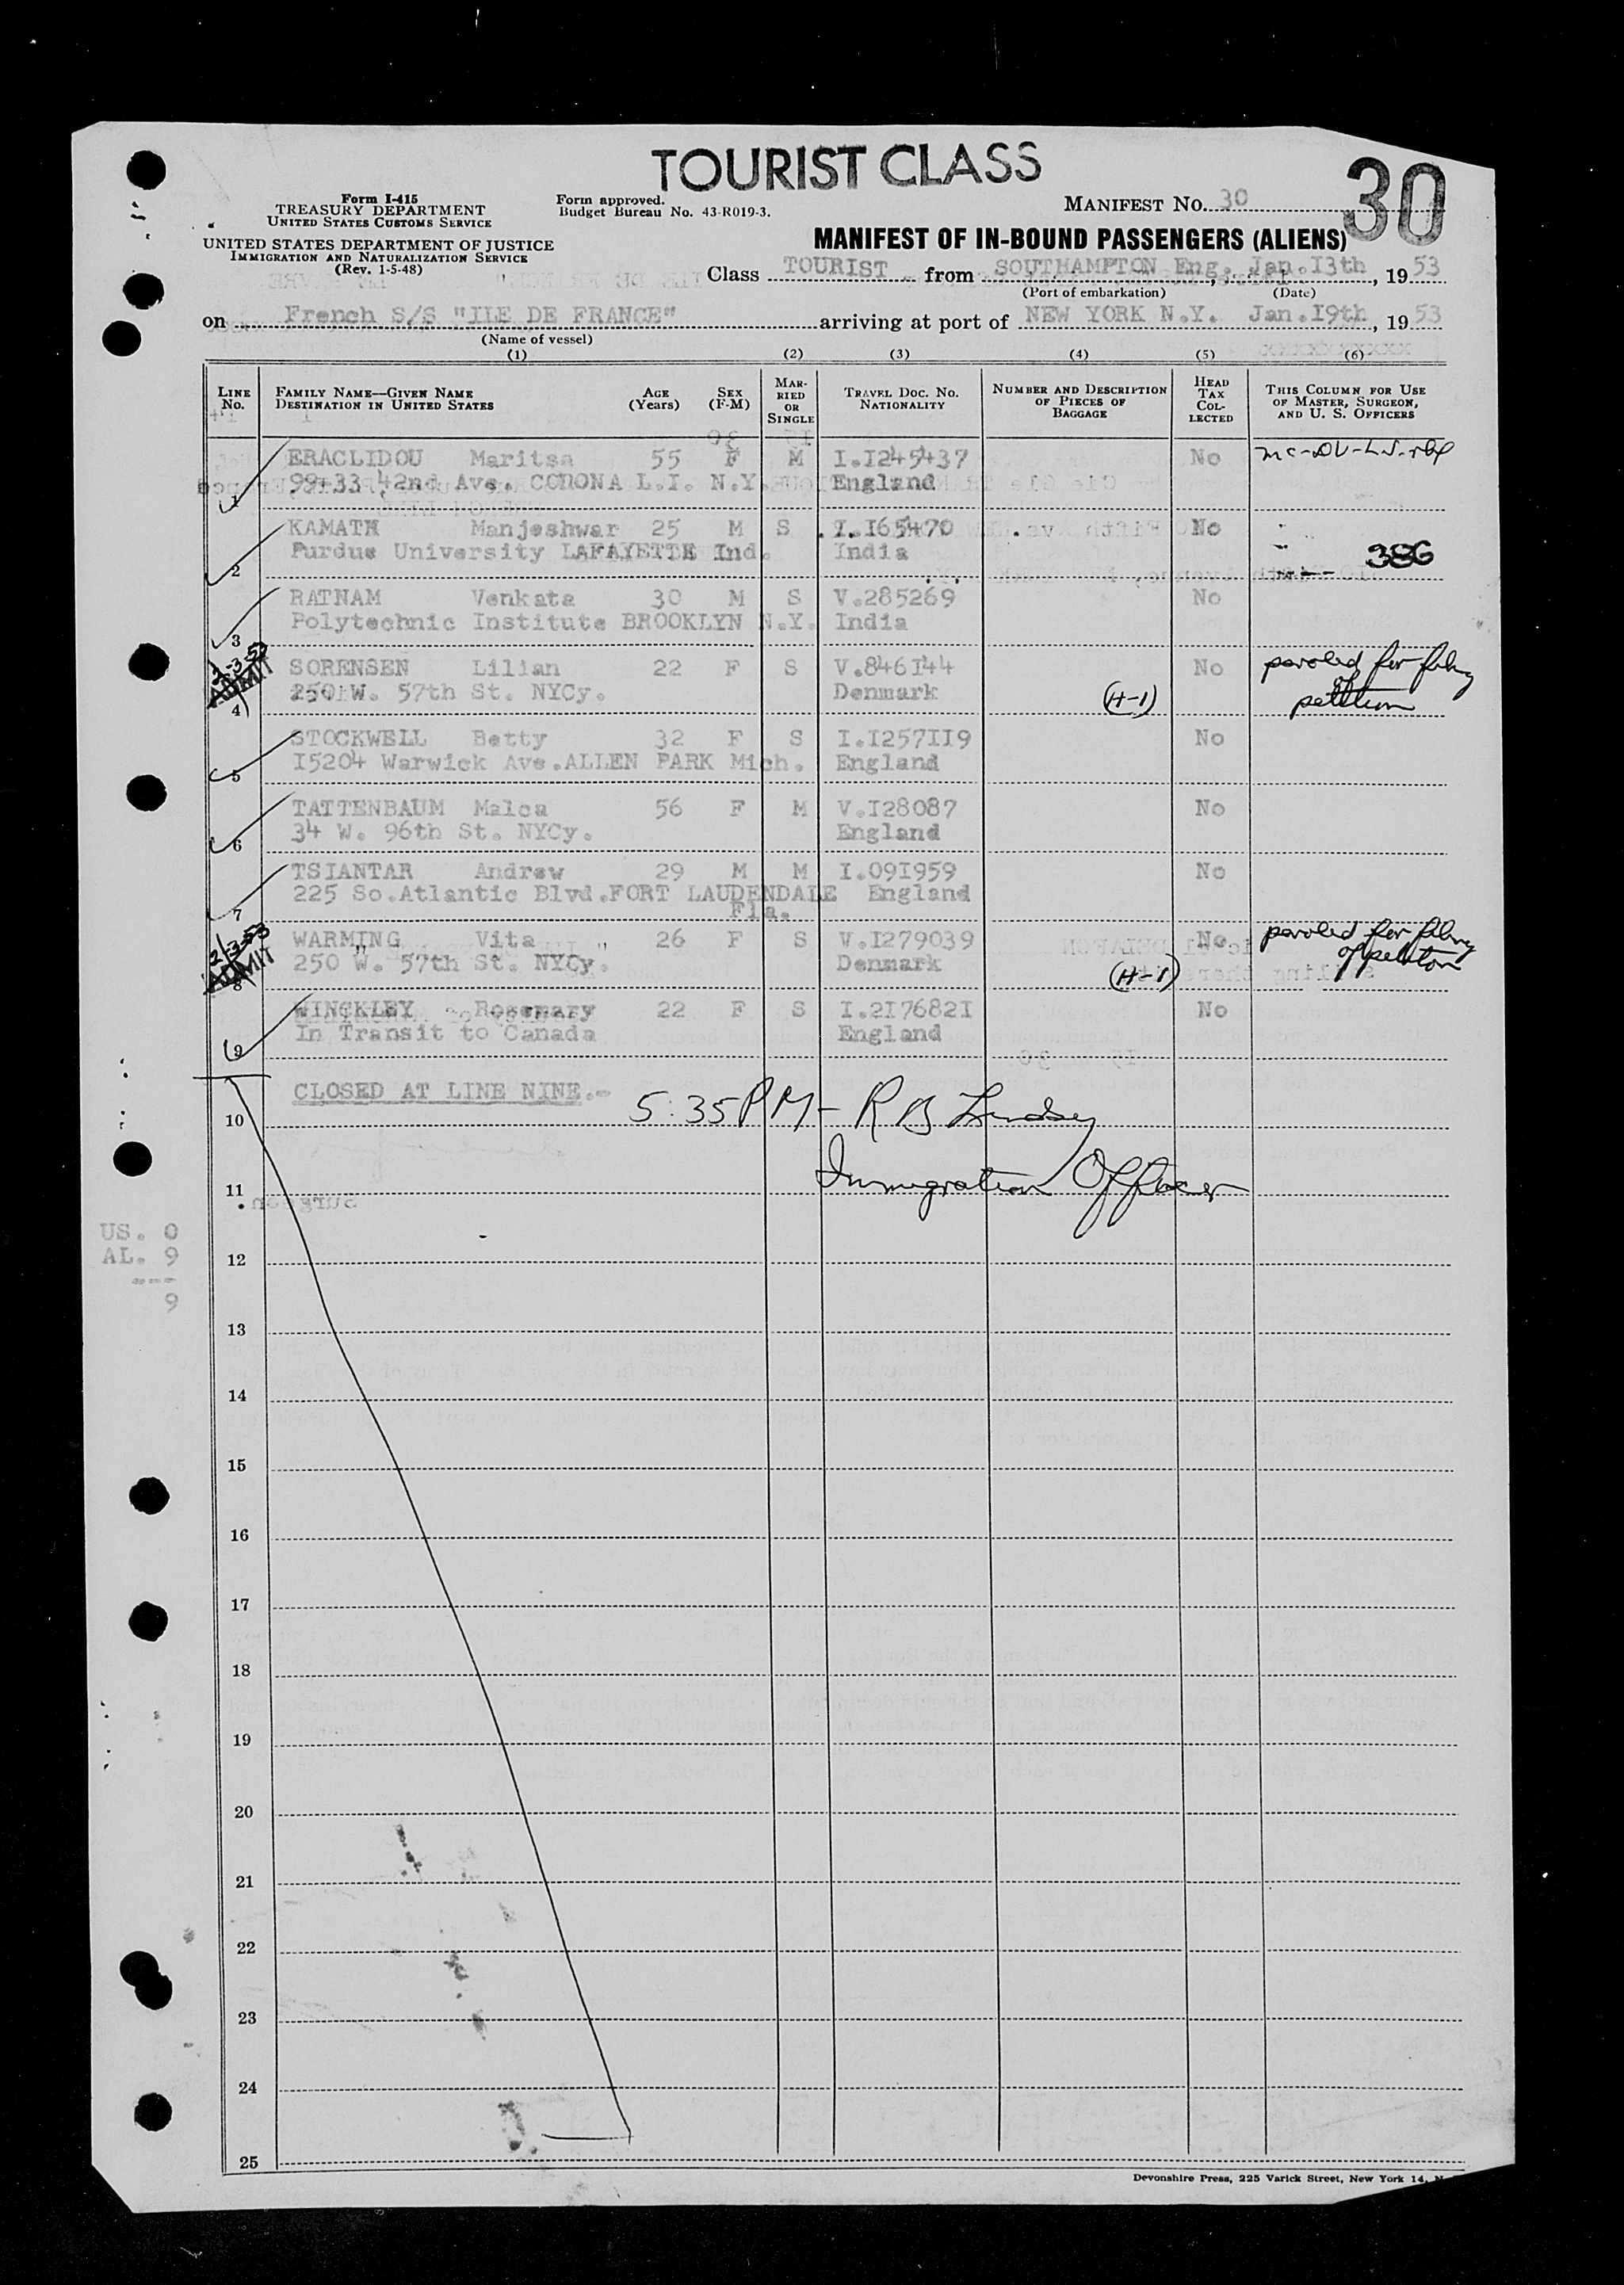 TOURIST CLASS
30
Form I-415
TREASURY DEPARTMENT
UNITED STATES CUSTOMS SERVICE
Form approved.
Budget Bureau No. 43-R019-3.
MANIFEST No. 30
UNITED STATES DEPARTMENT OF JUSTICE
IMMIGRATION AND NATURALIZATION SERVICE
(Rev. 1-5-48)
MANIFEST OF IN-BOUND PASSENGERS (ALIENS)
Class TOURIST from SOUTHAMPTON Eng. Jan.I3th, 19 53
(Port of embarkation) (Date)
on French S/S "ILE DE FRANCE" arriving at port of NEW YORK N.Y. Jan.I9th, 19 53
(Name of vessel)
(1) (2) (3) (4) (5) (6)
LINE No.
FAMILY NAME—GIVEN NAME
DESTINATION IN UNITED STATES
AGE (Years)
SEX (F-M)
MARRIED OR SINGLE
TRAVEL DOC. NO.
NATIONALITY
NUMBER AND DESCRIPTION OF PIECES OF BAGGAGE
HEAD TAX COLLECTED
THIS COLUMN FOR USE OF MASTER, SURGEON, AND U. S. OFFICERS
1 ERACLIDOU Maritsa 55 F M I.I245437 No
99-33 42nd Ave. CORONA L.I. N.Y. England
2 KAMATH Manjeshwar 25 M S I.I65470 No
Purdue University LAFAYETTE Ind. India 386
3 RATNAM Venkata 30 M S V.285269 No
Polytechnic Institute BROOKLYN N.Y. India
2-3-53 ADMIT
4 SORENSEN Lilian 22 F S V.846I44 No paroled for filing
250 W. 57th St. NYCy. Denmark (H-1) of petition
5 STOCKWELL Betty 32 F S I.I257II9 No
I5204 Warwick Ave.ALLEN PARK Mich. England
6 TATTENBAUM Malca 56 F M V.I28087 No
34 W. 96th St. NYCy. England
7 TSIANTAR Andrew 29 M M I.09I959 No
225 So.Atlantic Blvd.FORT LAUDENDALE England
Fla.
2/3-53 ADMIT
8 WARMING Vita 26 F S V.I279039 No paroled for filing
250 W. 57th St. NYCy. Denmark (H-1) of petition
9 WINCKLEY Rosemary 22 F S I.2I7682I No
In Transit to Canada England
CLOSED AT LINE NINE.-
10 5:35 PM - R B Lindsey
11 Immigration Officer
US. 0
AL. 9
---
9
12
13
14
15
16
17
18
19
20
21
22
23
24
25
Devonshire Press, 225 Varick Street, New York 14,